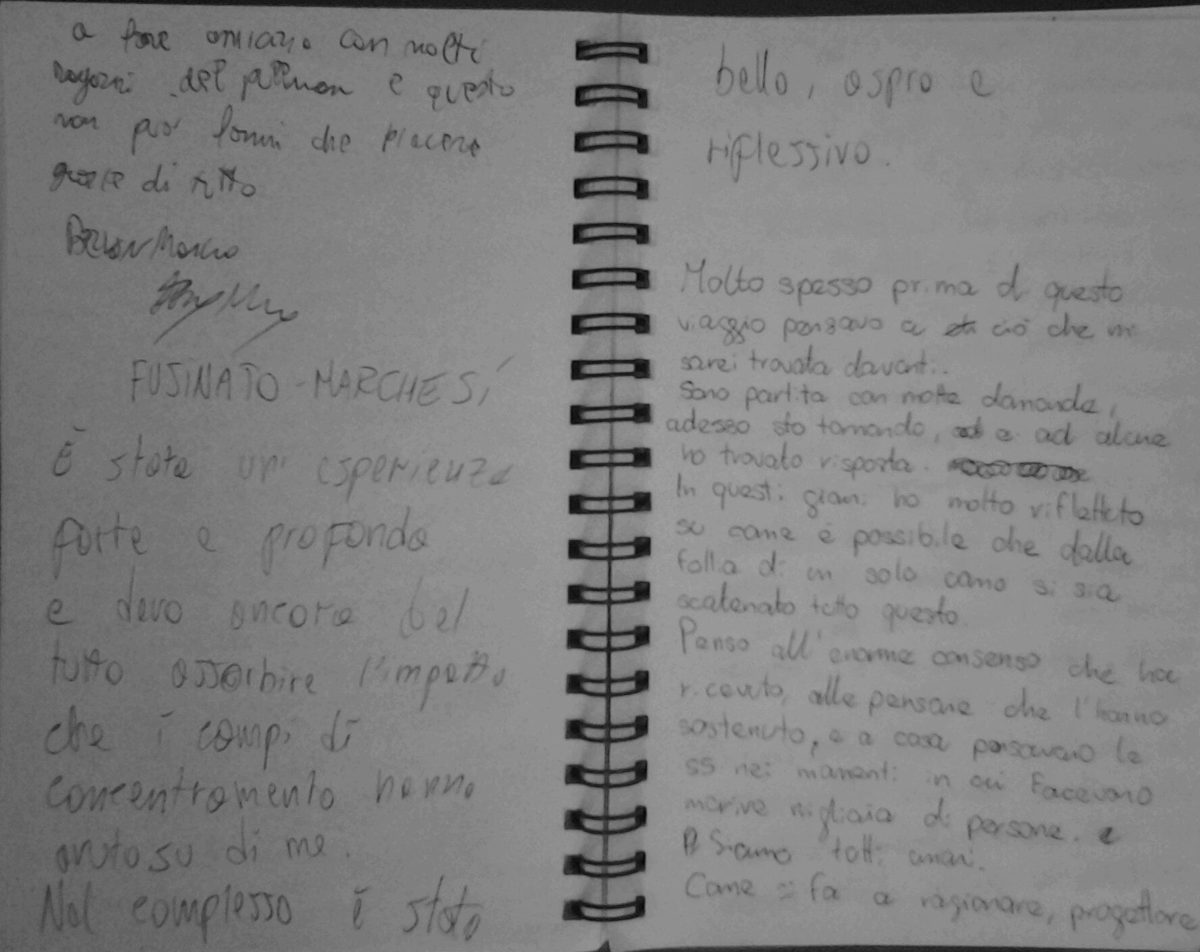 a fare amicizia con molti
ragazzi del pullman e questo
non può farmi che piacere
grazie di tutto
Marco
FUSINATO - MARCHESÍ
È stata un' esperienza
forte e profonda
e devo ancora del
tutto assorbire l'impatto
che i campi di
concentramento hanno
avuto su di me.
Nel complesso è stato
bello, aspro e
riflessivo.
Molto spesso prima di questo
viaggio pensavo a ciò che mi
sarei trovata davanti.
Sono partita con molte domande,
adesso sto tornando, e ad alcune
ho trovato risposta.
In questi giorni ho molto riflettuto
su come è possibile che dalla
follia di un solo uomo si sia
scatenato tutto questo.
Penso all'enorme consenso che ha
ricevuto, alle persone che l'hanno
sostenuto, e a cosa pensavano le
ss nei momenti in cui facevano
morire migliaia di persone.
Siamo tutti umani.
Come si fa a ragionare, progettare